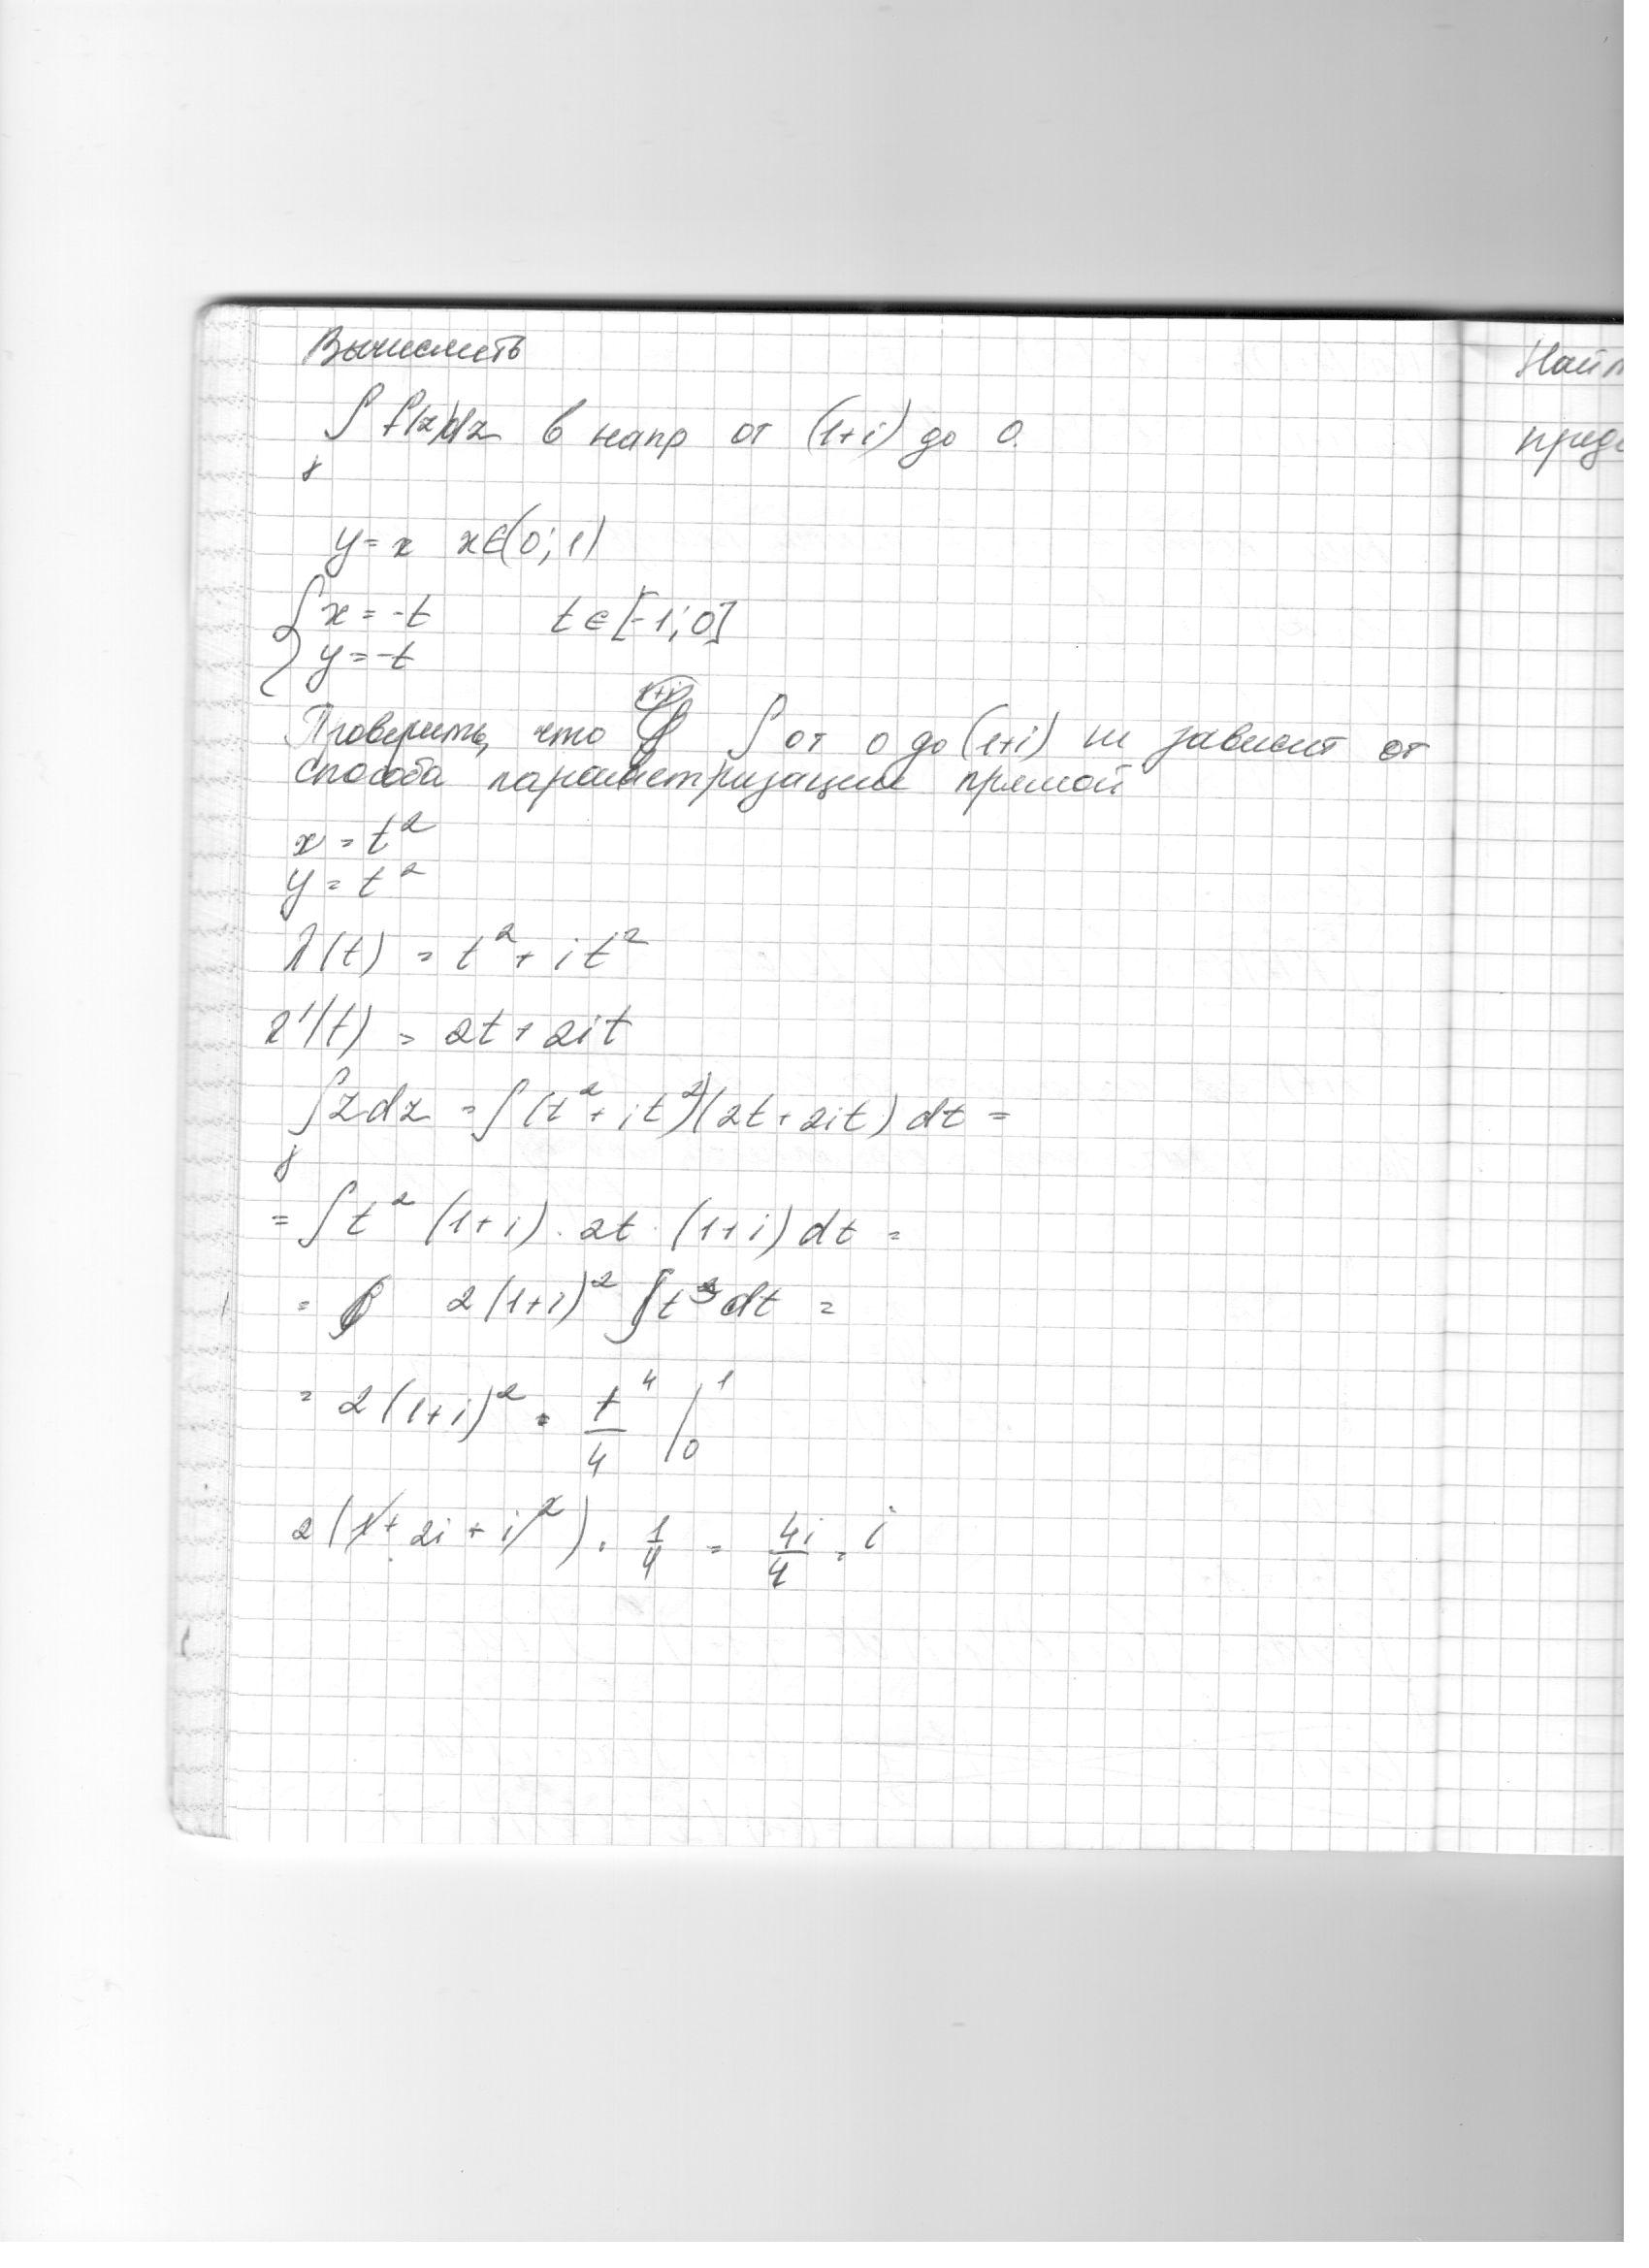 Вычислить
∫ f(z)dz в напр от (1+i) до 0.
γ
y = x x∈(0; 1)
{ x = -t t ∈ [-1; 0]
y = -t
Проверить, что ∫ от 0 до (1+i) не зависит от
способа параметризации прямой
x = t²
y = t²
λ(t) = t² + it²
λ'(t) = 2t + 2it
∫ z dz = ∫ (t² + it²)(2t + 2it) dt =
γ
= ∫ t² (1+i) · 2t · (1+i) dt =
= 2(1+i)² ∫ t³ dt =
= 2(1+i)² · t⁴/4 |₀¹
2(1 + 2i + i²) · 1/4 = 4i/4 = i
Найт
преде